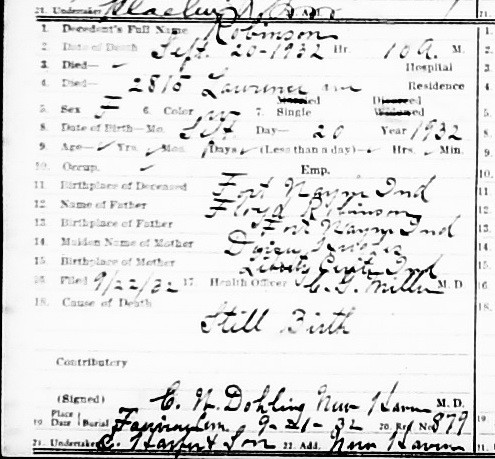 21. Undertaker Add.
1. Decedent's Full Name Robinson
2. Date of Death Sept. 20-1932 Hr. 10 A. M.
3. Died— Hospital
4. Died— 2815 Lawrence ave Residence
Married Divorced
5. Sex F 6. Color W 7. Single Widowed
8. Date of Birth—Mo. Sept Day— 20 Year 1932
9. Age— Yrs. Mos. Days (Less than a day)— Hrs. Min.
10. Occup. Emp.
11 Birthplace of Deceased Fort Wayne Ind
12 Name of Father Floyd Robinson
13 Birthplace of Father Fort Wayne Ind
14 Maiden Name of Mother
15 Birthplace of Mother Liberty Center Ind
16 Filed 9/22/32 17. Health Officer C. S. Miller M. D
18. Cause of Death
Still Birth
Contributory
(Signed) C. N. Dohling New Haven M. D.
19. Place Date Burial Fairview Cem. 9-21-32 20. Ref No. 879
21. Undertaker C. Harper & Son 22. Add. New Haven